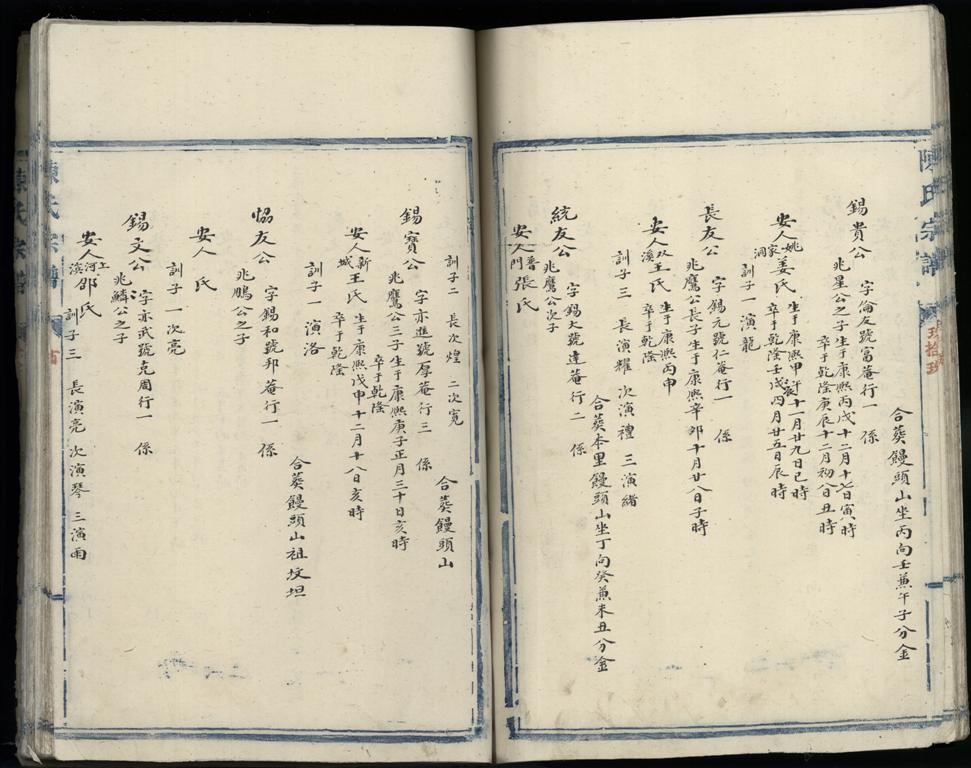 陳氏宗譜
玖拾玖
合葬饅頭山坐丙向壬兼午子分金
錫貴公 字倫友號富菴行一 係
兆星公之子生于康熙丙戌十二月十七日寅時
卒于乾隆庚辰十二月初八日丑時
安人姚家洞姜氏 生于康熙甲午十一月廿九日巳時
卒于乾隆壬戌四月廿五日辰時
訓子一 演龍
長友公 字錫元號仁菴行一 係
兆鷹公長子生于康熙辛卯十月廿八日子時
安人双溪王氏 生于康熙丙申
卒于乾隆
訓子三 長演耀 次演禮 三演緒
合葬本里饅頭山坐丁向癸兼未丑分金
統友公 字錫大號達菴行二 係
兆鷹公次子
安人普門張氏
訓子二 長次煌 二次寬
合葬饅頭山
錫寶公 字亦進號厚菴行三 係
兆鷹公三子生于康熙庚子正月三十日亥時
卒于乾隆
安人新城王氏 生于康熙戊申十二月十八日亥時
卒于乾隆
訓子一 演洛
合葬饅頭山祖坟坦
恊友公 字錫和號邦菴行一 係
兆鵬公之子
安人 氏
訓子一次亮
錫文公 字亦武號克周行一 係
兆鱗公之子
安人江河滨邵氏
訓子三 長演亮 次演琴 三演雨
陳氏宗譜